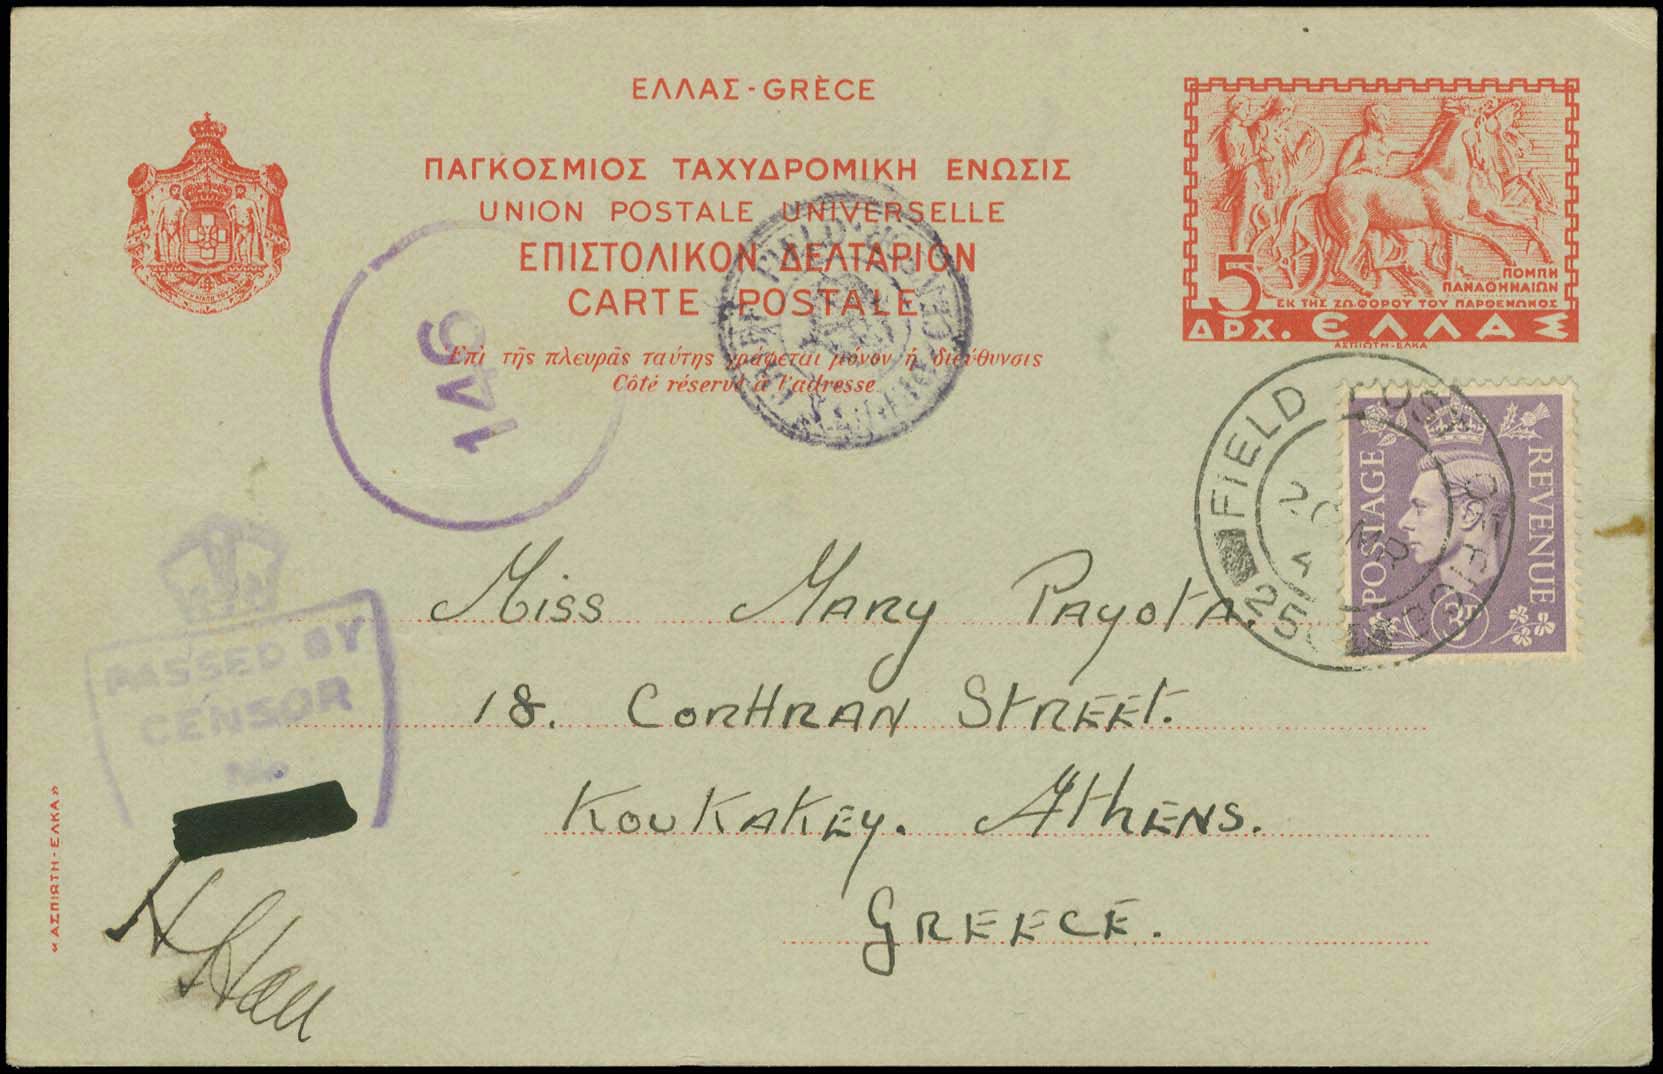 ΕΛΛΑΣ - GRÈCE
ΠΑΓΚΟΣΜΙΟΣ ΤΑΧΥΔΡΟΜΙΚΗ ΕΝΩΣΙΣ
UNION POSTALE UNIVERSELLE
ΕΠΙΣΤΟΛΙΚΟΝ ΔΕΛΤΑΡΙΟΝ
CARTE POSTALE
Ἐπὶ τῆς πλευρᾶς ταύτης γράφεται μόνον ἡ διεύθυνσις
Côté réservé à l'adresse
ΠΟΜΠΗ
ΠΑΝΑΘΗΝΑΙΩΝ
5
ΕΚ ΤΗΣ ΖΩΦΟΡΟΥ ΤΟΥ ΠΑΡΘΕΝΩΝΟΣ
ΔΡΧ. ΕΛΛΑΣ
ΑΣΠΙΩΤΗ-ΕΛΚΑ
146
FIELD POST OFFICE
20 MR
POSTAGE REVENUE
3D
PASSED BY
CENSOR
No
Miss Mary Payota.
18. Corhran Street.
Koukakey. Athens.
Greece.
«ΑΣΠΙΩΤΗ-ΕΛΚΑ»